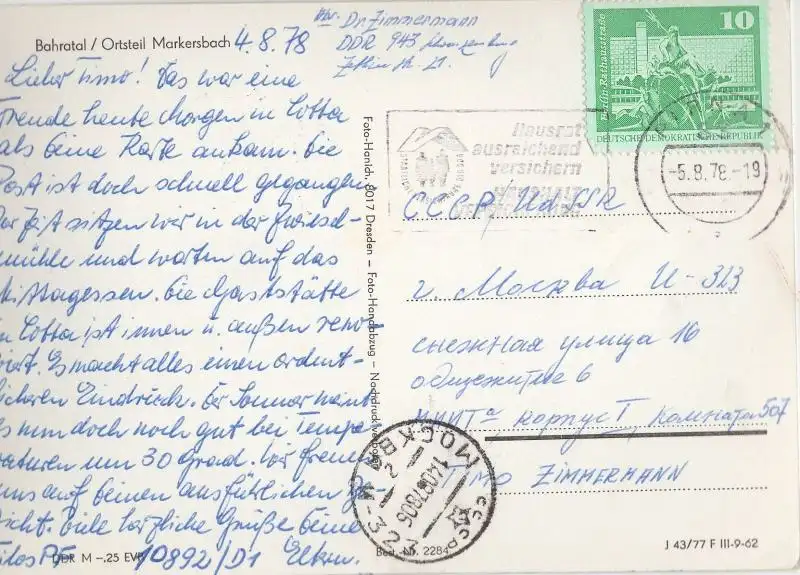 Bahratal / Ortsteil Markersbach 4.8.78
Abs. Dr. Zimmermann
DDR 943
Lieber Timo! Das war eine
Freude heute Morgen in Cotta
als Deine Karte ankam. Die
Post ist doch schnell gegangen.
Zur Zeit sitzen wir in der Zwiesel-
mühle und warten auf das
Mittagessen. Die Gaststätte
in Cotta ist innen u. außen reno-
viert. Es macht alles einen ordent-
licheren Eindruck. Der Sommer meint
es nun doch noch gut bei Tempe
raturen um 30 Grad. Wir freuen
uns auf Deinen ausführlichen Be-
richt. Viele herzliche Grüße Deine
Eltern.
10892/D1
DDR M –,25 EVP
Foto-Hanich, 8017 Dresden – Foto-Handabzug – Nachdruck verboten
Best.-Nr. 2284
10
Berlin-Rathausstraße
DEUTSCHE DEMOKRATISCHE REPUBLIK
Hausrat
ausreichend
versichern
HAUSHALT
-5.8.78.-19
СССР, UdSSR
г. Москва И-313
снежная улица 16
общежитие 6
МИИТа корпус I, Комната 507
TIMO ZIMMERMANN
МОСКВА
СССР
J 43/77 F III-9-62